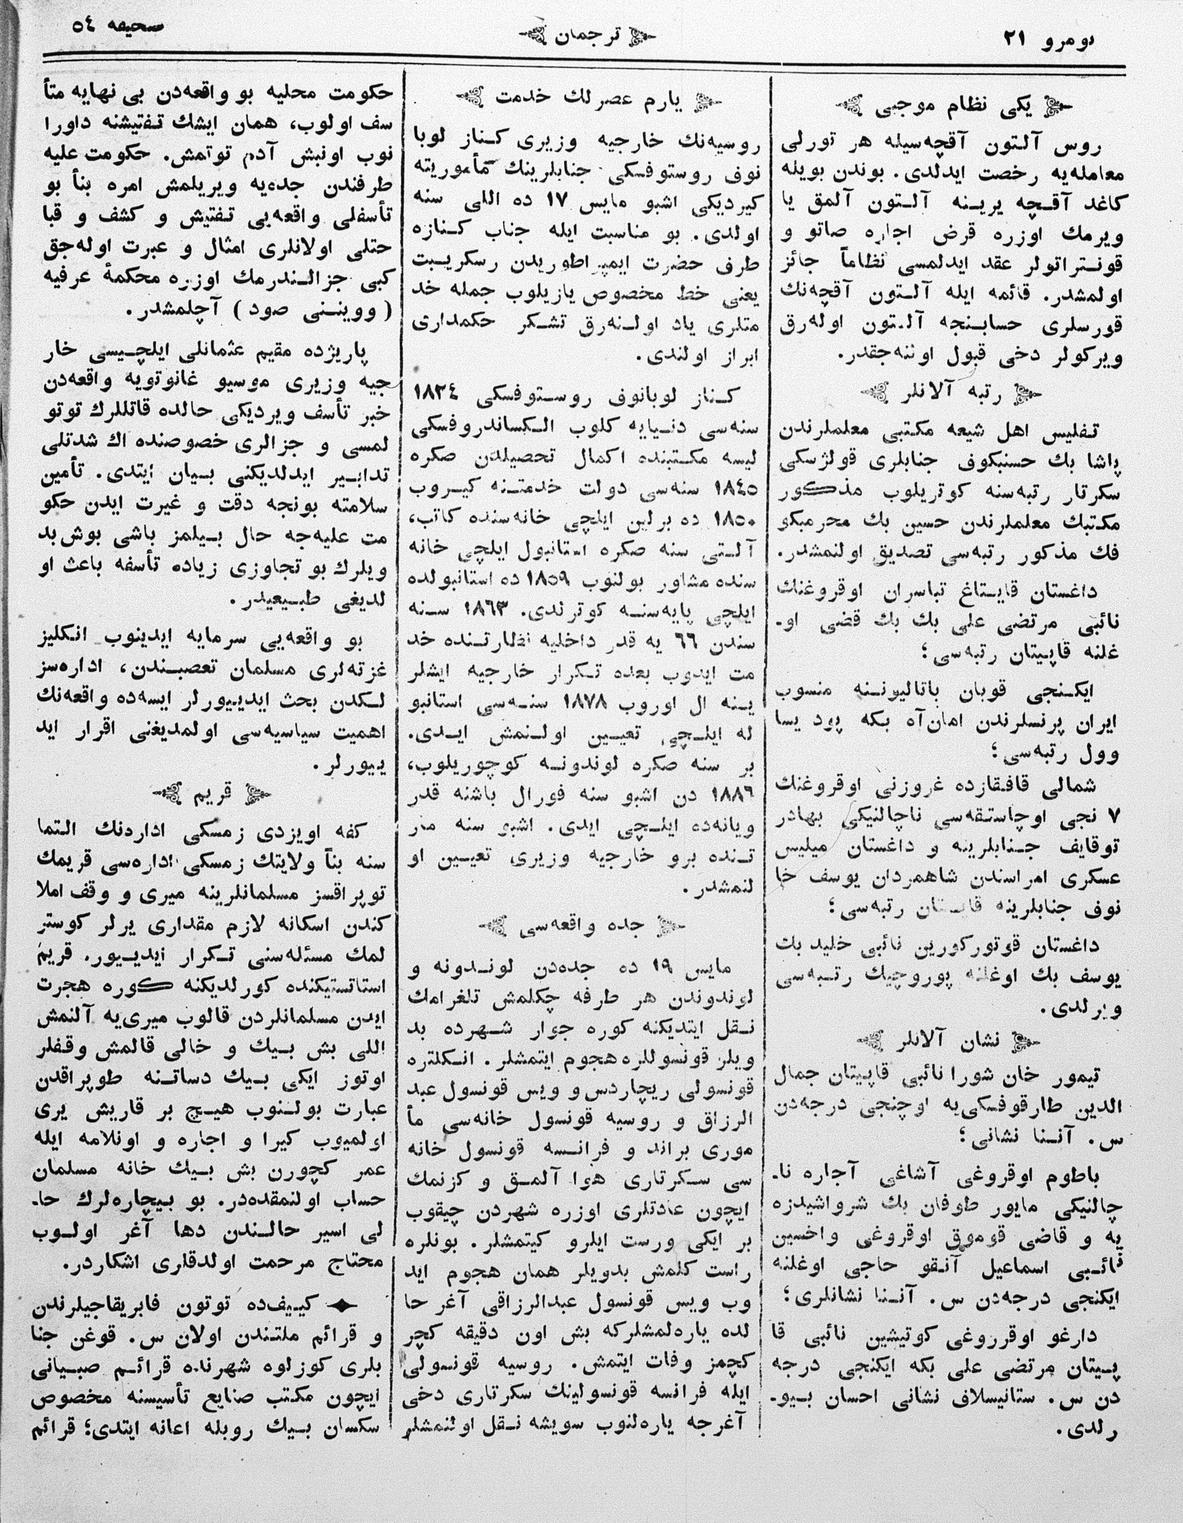 نومرو ٢١
ترجمان
صحيفه ٥٤
يكى نظام موجبى
روس آلتون آقچه‌سيله هر تورلى
معامله‌يه رخصت ايدلدى. بوندن بويله
كاغد آقچه يرينه آلتون آلمق يا
ويرمك اوزره قرض اجاره صاتو و
قونتراتولر عقد ايدلمسى نظاماً جائز
اولمشدر. قائمه ايله آلتون آقچه‌نك
قورسلرى حسابنجه آلتون اوله‌رق
ويركولر دخى قبول اوننه‌جقدر.
رتبه آلانلر
تفليس اهل شيعه مكتبى معلملرندن
پاشا بك حسنبكوف جنابلرى قولژسكى
سكرتار رتبه‌سنه كوتريلوب مذكور
مكتبك معلملرندن حسين بك محرمبكو
فك مذكور رتبه‌سى تصديق اولنمشدر.
داغستان قايتاغ تباسران اوقروغنك
نائبى مرتضى على بك بك قضى او-
غلنه قاپيتان رتبه‌سى؛
ايكنجى قوبان باتاليوننه منسوب
ايران پرنسلرندن امان‌آه بكه پود يسا
وول رتبه‌سى؛
شمالى قافقازده غروزنى اوقروغنك
٧ نجى اوچاستقه‌سى ناچالنيكى بهادر
توقايف جنابلرينه و داغستان ميليس
عسكرى امراسندن شاهمردان يوسف خا
نوف جنابلرينه قاپيتان رتبه‌سى؛
داغستان قوتوركورين نائبى خليد بك
يوسف بك اوغلنه پوروچيك رتبه‌سى
ويرلدى.
نشان آلانلر
تيمور خان شورا نائبى قاپيتان جمال
الدين طارقوفسكى‌يه اوچنجى درجه‌دن
س. آننا نشانى؛
باطوم اوقروغى آشاغى آجاره نا-
چالنيكى مايور طوفان بك شرواشيدزه
يه و قاضى قوموق اوقروغى واخسين
نائبى اسماعيل آنقو حاجى اوغلنه
ايكنجى درجه‌دن س. آننا نشانلرى؛
دارغو اوقرروغى كوتيشين نائبى قا
پيتان مرتضى على بكه ايكنجى درجه
دن س. ستانيسلاف نشانى احسان بيو-
رلدى.
يارم عصرلك خدمت
روسيه‌نك خارجيه وزيرى كناز لوبا
نوف روستوفسكى جنابلرينك مأموريته
كيرديكى اشبو مايس ١٧ ده اللى سنه
اولدى. بو مناسبت ايله جناب كنازه
طرف حضرت ايمپراطوريدن رسكريبت
يعنى خط مخصوص يازيلوب جمله خد
متلرى ياد اولنه‌رق تشكر حكمدارى
ابراز اولندى.
كناز لوبانوف روستوفسكى ١٨٢٤
سنه‌سى دنيايه كلوب الكساندروفسكى
ليسه مكتبنده اكمال تحصيلدن صكره
١٨٤٥ سنه‌سى دولت خدمتنه كيروب
١٨٥٠ ده برلين ايلچى خانه‌سنده كاتب،
آلتى سنه صكره استانبول ايلچى خانه
سنده مشاور بولنوب ١٨٥٩ ده استانبولده
ايلچى پايه‌سنه كوترلدى. ١٨٦٣ سنه
سندن ٦٦ يه قدر داخليه نظارتنده خد
مت ايدوب بعده تكرار خارجيه ايشلر
ينه ال اوروب ١٨٧٨ سنه‌سى استانبو
له ايلچى تعيين اولنمش ايدى.
بر سنه صكره لوندونه كوچوريلوب،
١٨٨٦ دن اشبو سنه فورال باشنه قدر
ويانه‌ده ايلچى ايدى. اشبو سنه مار
تنده برو خارجيه وزيرى تعيين او
لنمشدر.
جده واقعه‌سى
مايس ١٩ ده جده‌دن لوندونه و
لوندوندن هر طرفه چكلمش تلغرامك
نقل ايتديكنه كوره جوار شهرده بد
ويلر قونسوللره هجوم ايتمشلر. انكلتره
قونسولى ريچاردس و ويس قونسول عبد
الرزاق و روسيه قونسول خانه‌سى مأ
مورى براند و فرانسه قونسول خانه
سى سكرتارى هوا آلمق و كزنمك
ايچون عادتلرى اوزره شهردن چيقوب
بر ايكى ورست ايلرو كيتمشلر. بونلره
راست كلمش بدويلر همان هجوم ايد
وب ويس قونسول عبدالرزاقى آغر حا
لده ياره‌لمشلركه بش اون دقيقه كچر
كچمز وفات ايتمش. روسيه قونسولى
ايله فرانسه قونسولينك سكرتارى دخى
آغرجه ياره‌لنوب سويشه نقل اولنمشلر
حكومت محليه بو واقعه‌دن بى نهايه متأ
سف اولوب، همان ايشك تفتيشنه داورا
نوب اونبش آدم توتمش. حكومت عليه
طرفندن جده‌يه ويريلمش امره بنأ بو
تأسفلى واقعه‌يى تفتيش و كشف و قبا
حتلى اولانلرى امثال و عبرت اوله‌جق
كبى جزالندرمك اوزره محكمهٔ عرفيه
(ووينى صود) آچلمشدر.
پاريژده مقيم عثمانلى ايلچيسى خار
جيه وزيرى موسيو غانوتويه واقعه‌دن
خبر تأسف ويرديكى حالده قاتللرك توتو
لمسى و جزالرى خصوصنده اك شدتلى
تدابير ايدلديكنى بيان ايتدى. تأمين
سلامته بونجه دقت و غيرت ايدن حكو
مت عليه‌جه حال بيلمز باشى بوش بد
ويلرك بو تجاوزى زياده تأسفه باعث او
لديغى طبيعيدر.
بو واقعه‌يى سرمايه ايدينوب انكليز
غزته‌لرى مسلمان تعصبندن، اداره‌سز
لكدن بحث ايدييورلر ايسه‌ده واقعه‌نك
اهميت سياسيه‌سى اولمديغنى اقرار ايد
ييورلر.
قريم
كفه اويزدى زمسكى اداردنك التما
سنه بنأ ولايتك زمسكى اداره‌سى قريمك
توپراقسز مسلمانلرينه ميرى و وقف املا
كندن اسكانه لازم مقدارى يرلر كوستر
لمك مسئله‌سنى تكرار ايدييور. قريم
استاتستيكنده كورلديكنه كوره هجرت
ايدن مسلمانلردن قالوب ميرى‌يه آلنمش
اللى بش بيك و خالى قالمش وقفلر
اوتوز ايكى بيك دساتنه طوپراقدن
عبارت بولنوب هيچ بر قاريش يرى
اولميوب كيرا و اجاره و اونلامه ايله
عمر كچورن بش بيك خانه مسلمان
حساب اولنمقده‌در. بو بيچاره‌لرك حا-
لى اسير حالندن دها آغر اولوب
محتاج مرحمت اولدقلرى اشكاردر.
كييف‌ده توتون فابريقاجيلرندن
و قرائم ملتندن اولان س. قوغن جنا
بلرى كوزلوه شهرنده قرائم صبيانى
ايچون مكتب صنايع تأسيسنه مخصوص
سكسان بيك روبله اعانه ايتدى؛ قرائم